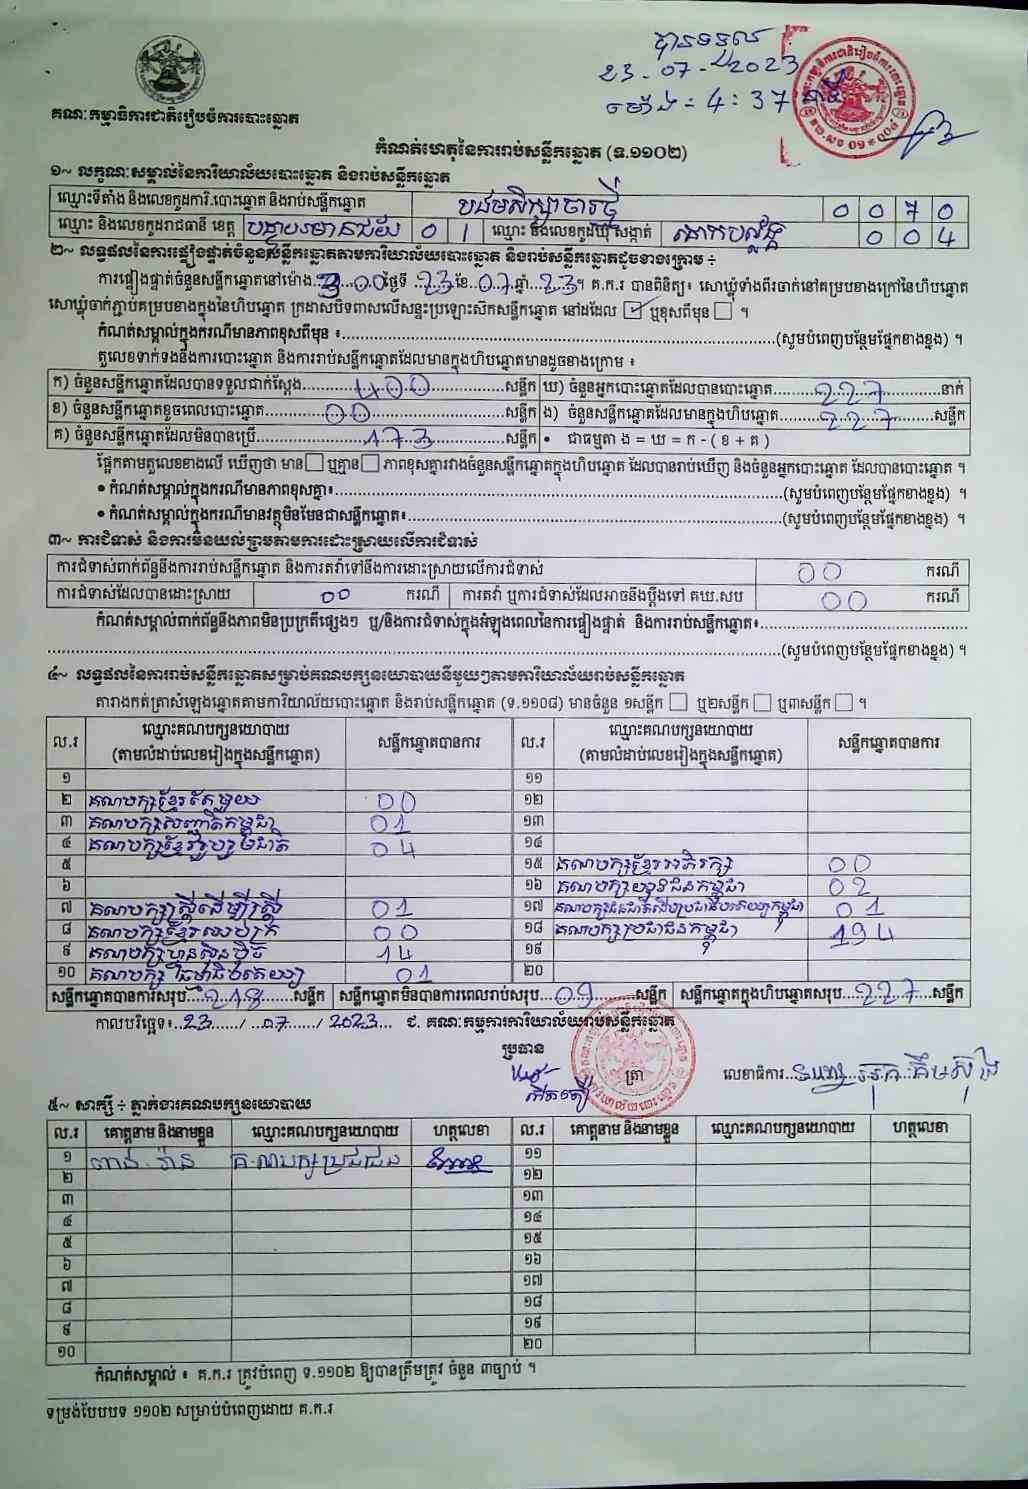 បានទទួល
23-07-2023
ម៉ោង: 4:37 នាទី
គណៈកម្មាធិការជាតិរៀបចំការបោះឆ្នោត
កំណត់ហេតុនៃការរាប់សន្លឹកឆ្នោត (ទ.១១០២)
១~ លក្ខណៈសម្គាល់នៃការិយាល័យបោះឆ្នោត និងរាប់សន្លឹកឆ្នោត
ឈ្មោះទីតាំង និងលេខកូដការិ.បោះឆ្នោត និងរាប់សន្លឹកឆ្នោត 0 0 7 0
ឈ្មោះ និងលេខកូដរាជធានី ខេត្ត បន្ទាយមានជ័យ 0 1 ឈ្មោះ និងលេខកូដឃុំ សង្កាត់ 0 0 4
២~ លទ្ធផលនៃការផ្ទៀងផ្ទាត់ចំនួនសន្លឹកឆ្នោតតាមការិយាល័យបោះឆ្នោត និងរាប់សន្លឹកឆ្នោតដូចខាងក្រោម ÷
ការផ្ទៀងផ្ទាត់ចំនួនសន្លឹកឆ្នោតនៅម៉ោង 3 00 ថ្ងៃទី 23 ខែ 07 ឆ្នាំ 23 ។ គ.ក.រ បានពិនិត្យ៖ សោឃ្លុំទាំងពីរចាក់នៅគម្របខាងក្រៅនៃហិបឆ្នោត
សោឃ្លុំចាក់ភ្ជាប់គម្របខាងក្នុងនៃហិបឆ្នោត ក្រដាសបិទពាសលើសន្ទះប្រឡោះស៊កសន្លឹកឆ្នោត នៅដដែល ☑ ឬខុសពីមុន ☐ ។
កំណត់សម្គាល់ក្នុងករណីមានភាពខុសពីមុន ៖ (សូមបំពេញបន្ថែមផ្នែកខាងខ្នង) ។
តួលេខទាក់ទងនឹងការបោះឆ្នោត និងការរាប់សន្លឹកឆ្នោតដែលមានក្នុងហិបឆ្នោតមានដូចខាងក្រោម ៖
ក) ចំនួនសន្លឹកឆ្នោតដែលបានទទួលជាក់ស្តែង 400 សន្លឹក ឃ) ចំនួនអ្នកបោះឆ្នោតដែលបានបោះឆ្នោត 227 នាក់
ខ) ចំនួនសន្លឹកឆ្នោតខូចពេលបោះឆ្នោត 00 សន្លឹក ង) ចំនួនសន្លឹកឆ្នោតដែលមានក្នុងហិបឆ្នោត 227 សន្លឹក
គ) ចំនួនសន្លឹកឆ្នោតដែលមិនបានប្រើ 173 សន្លឹក • ជាធម្មតា ង = ឃ = ក - ( ខ + គ )
ផ្អែកតាមតួលេខខាងលើ ឃើញថា មាន ☐ ឬគ្មាន ☐ ភាពខុសគ្នារវាងចំនួនសន្លឹកឆ្នោតក្នុងហិបឆ្នោត ដែលបានរាប់ឃើញ និងចំនួនអ្នកបោះឆ្នោត ដែលបានបោះឆ្នោត ។
• កំណត់សម្គាល់ក្នុងករណីមានភាពខុសគ្នា៖ (សូមបំពេញបន្ថែមផ្នែកខាងខ្នង) ។
• កំណត់សម្គាល់ក្នុងករណីមានវត្ថុមិនមែនជាសន្លឹកឆ្នោត៖ (សូមបំពេញបន្ថែមផ្នែកខាងខ្នង) ។
៣~ ការជំទាស់ និងការមិនយល់ព្រមតាមការដោះស្រាយលើការជំទាស់
ការជំទាស់ពាក់ព័ន្ធនឹងការរាប់សន្លឹកឆ្នោត និងការតវ៉ាទៅនឹងការដោះស្រាយលើការជំទាស់ 00 ករណី
ការជំទាស់ដែលបានដោះស្រាយ 00 ករណី ការតវ៉ា ឬការជំទាស់ដែលអាចនឹងប្តឹងទៅ គឃ.សប 00 ករណី
កំណត់សម្គាល់ពាក់ព័ន្ធនឹងភាពមិនប្រក្រតីផ្សេងៗ ឬ/និងការជំទាស់ក្នុងអំឡុងពេលនៃការផ្ទៀងផ្ទាត់ និងការរាប់សន្លឹកឆ្នោត៖
(សូមបំពេញបន្ថែមផ្នែកខាងខ្នង) ។
៤~ លទ្ធផលនៃការរាប់សន្លឹកឆ្នោតសម្រាប់គណបក្សនយោបាយនីមួយៗតាមការិយាល័យរាប់សន្លឹកឆ្នោត
តារាងកត់ត្រាសំឡេងឆ្នោតតាមការិយាល័យបោះឆ្នោត និងរាប់សន្លឹកឆ្នោត (ទ.១១០៨) មានចំនួន ១សន្លឹក ☐ ឬ២សន្លឹក ☐ ឬ៣សន្លឹក ☐ ។
ល.រ ឈ្មោះគណបក្សនយោបាយ (តាមលំដាប់លេខរៀងក្នុងសន្លឹកឆ្នោត) សន្លឹកឆ្នោតបានការ ល.រ ឈ្មោះគណបក្សនយោបាយ (តាមលំដាប់លេខរៀងក្នុងសន្លឹកឆ្នោត) សន្លឹកឆ្នោតបានការ
១ ១១
២ គណបក្សខ្មែរតែមួយ 00 ១២
៣ គណបក្សសញ្ជាតិកម្ពុជា 01 ១៣
៤ គណបក្សខ្មែររួបរួមជាតិ 04 ១៤
៥ ១៥ គណបក្សខ្មែរអភិរក្ស 00
៦ ១៦ គណបក្សយុវជនកម្ពុជា 02
៧ គណបក្សស្ត្រីដើម្បីស្ត្រី 01 ១៧ គណបក្សជនជាតិដើមប្រជាធិបតេយ្យកម្ពុជា 01
៨ គណបក្សខ្មែរឈប់ក្រ 00 ១៨ គណបក្សប្រជាជនកម្ពុជា 194
៩ គណបក្សហ៊្វុនស៊ិនប៉ិច 14 ១៩
១០ គណបក្សធម្មាធិបតេយ្យ 01 ២០
សន្លឹកឆ្នោតបានការសរុប 218 សន្លឹក សន្លឹកឆ្នោតមិនបានការពេលរាប់សរុប 09 សន្លឹក សន្លឹកឆ្នោតក្នុងហិបឆ្នោតសរុប 227 សន្លឹក
កាលបរិច្ឆេទ៖ 23 / 07 / 2023 ជ. គណៈកម្មការការិយាល័យរាប់សន្លឹកឆ្នោត
ប្រធាន ត្រា លេខាធិការ
៥~ សាក្សី ÷ ភ្នាក់ងារគណបក្សនយោបាយ
ល.រ គោត្តនាម និងនាមខ្លួន ឈ្មោះគណបក្សនយោបាយ ហត្ថលេខា ល.រ គោត្តនាម និងនាមខ្លួន ឈ្មោះគណបក្សនយោបាយ ហត្ថលេខា
១ គណបក្សប្រជាជន ១១
២ ១២
៣ ១៣
៤ ១៤
៥ ១៥
៦ ១៦
៧ ១៧
៨ ១៨
៩ ១៩
១០ ២០
កំណត់សម្គាល់ ៖ គ.ក.រ ត្រូវបំពេញ ទ.១១០២ ឱ្យបានត្រឹមត្រូវ ចំនួន ៣ច្បាប់ ។
ទម្រង់បែបបទ ១១០២ សម្រាប់បំពេញដោយ គ.ក.រ